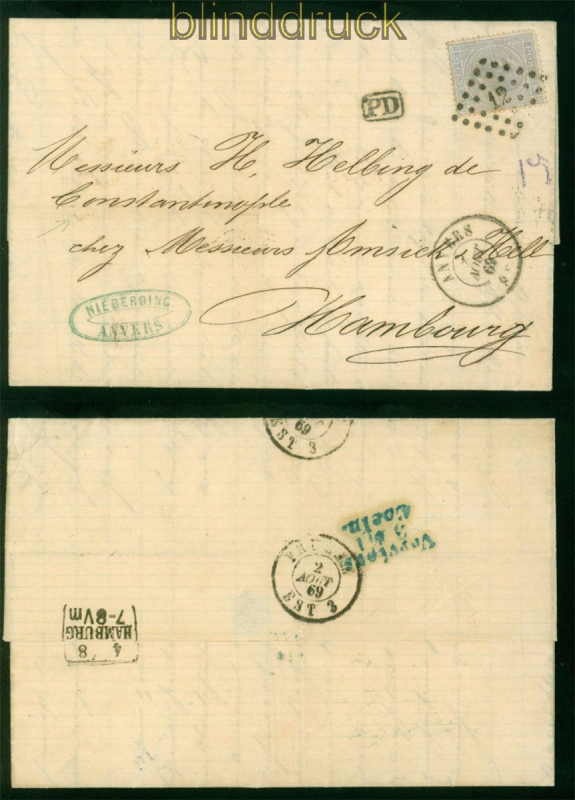 blinddruck
PD
12
Messieurs H. Helbing de
Constantinople
chez Messieurs
Hambourg
ANVERS
AOUT
69
NIEBERDING
ANVERS
69
EST 3
Verviers
Coeln.
2
AOUT
69
EST 3
4 8
HAMBURG
7-8Vm